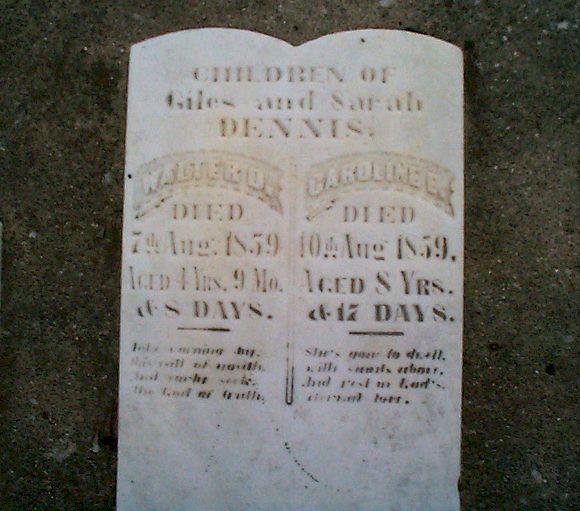 CHILDREN OF
Giles and Sarah
DENNIS.
WALTER D.
DIED
7th Aug. 1859
AGED 4 YRS. 9 MO.
& 8 DAYS.
this call of
And seek,
the God of truth.
CAROLINE E.
DIED
10th Aug 1859.
AGED 8 YRS.
& 17 DAYS.
She's gone to dwell,
with saints above,
And rest in God's,
eternal love.